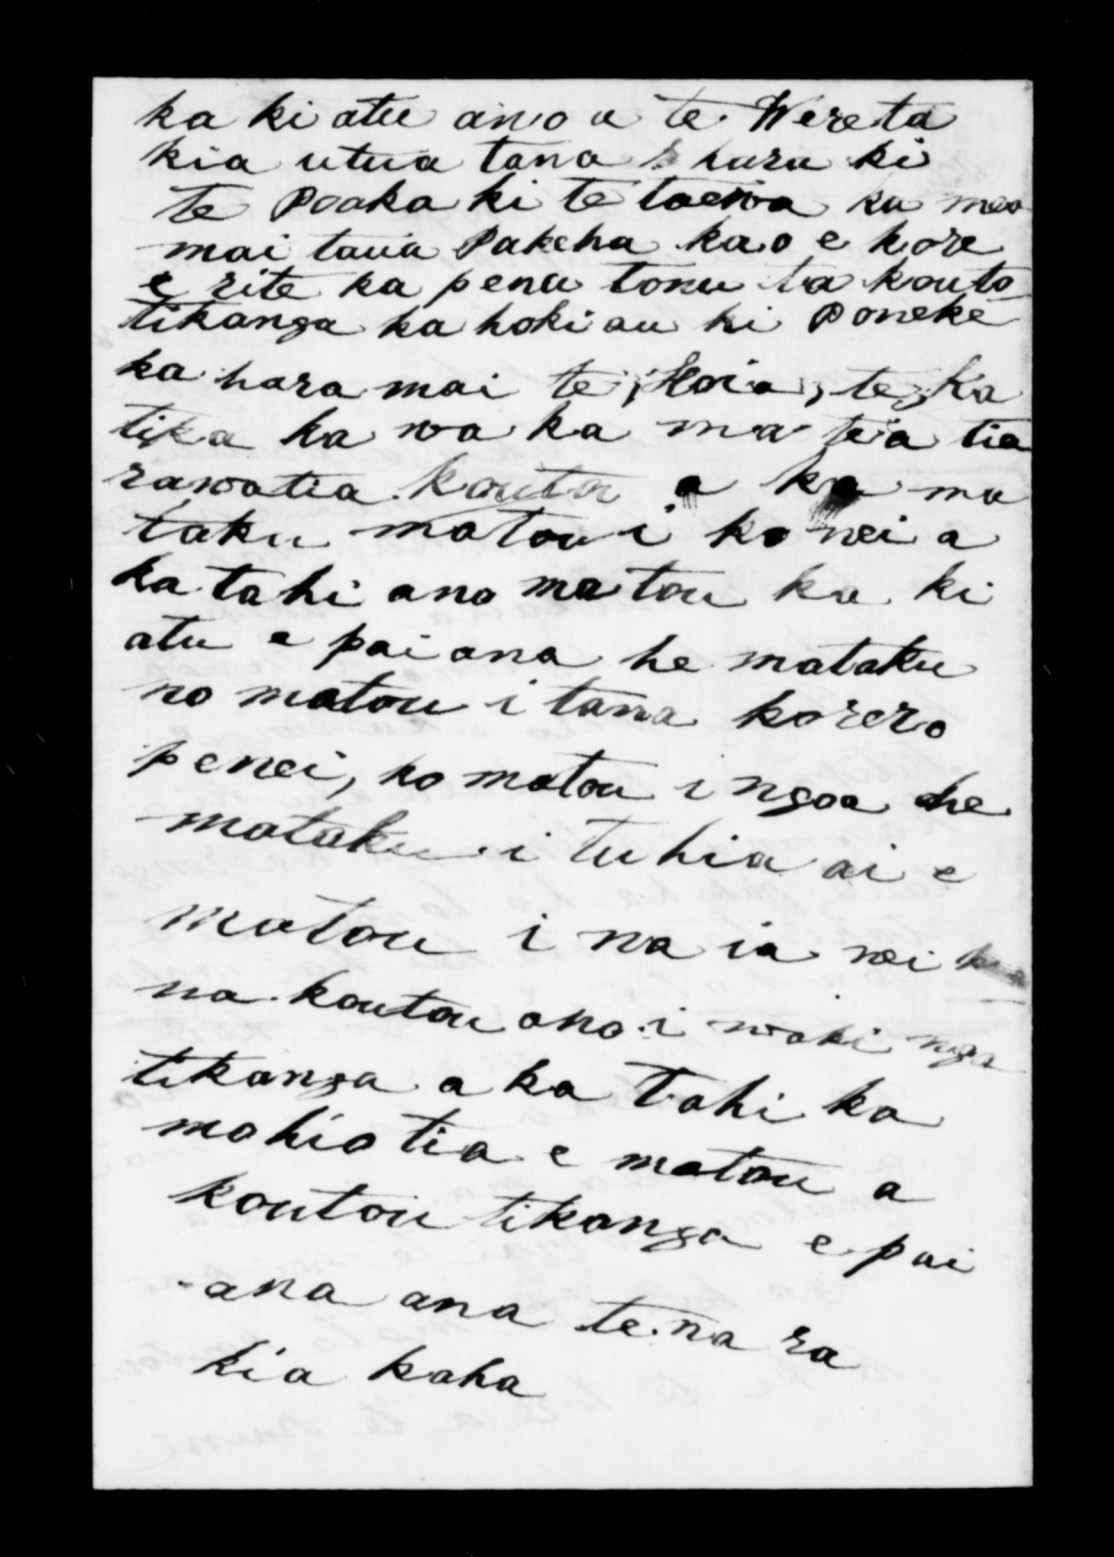 ka ki atu ano a te Wereta
kia utua tana hara ki
te Poaka ki te taewa ka mea
mai taua Pakeha kao e kore
e rite ka pena tonu ta kouto
tikanga ka hoki au ki Poneke
ka hara mai te, Hoia, te, ka
tika ka wa ka ma te a tia
rawatia koutou a ka ma
taku matou i ko nei a
ka tahi ano matou ka ki
atu e pai ana he mataku
no matou i tana korero
penei, ko matou ingoa he
mataku i tuhia ai e
matou i na ia nei
na koutou ano i waki nga
tikanga a ka Tahi ka
mohio tia e matou a
koutou tikanga e pai
-ana ana te na ra
kia kaha